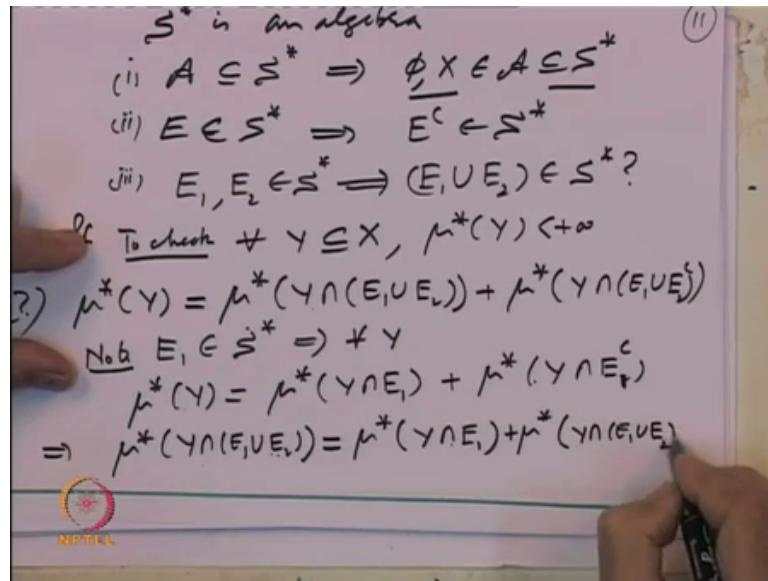 S* is an algebra
11
(i) A ⊆ S* ⇒ ϕ, X ∈ A ⊆ S*
(ii) E ∈ S* ⇒ E^c ∈ S*
(iii) E₁, E₂ ∈ S* ⇒ (E₁ ∪ E₂) ∈ S*?
To check ∀ Y ⊆ X, μ*(Y) < +∞
?) μ*(Y) = μ*(Y ∩ (E₁ ∪ E₂)) + μ*(Y ∩ (E₁ ∪ E₂)^c)
Note E₁ ∈ S* ⇒ ∀ Y
μ*(Y) = μ*(Y ∩ E₁) + μ*(Y ∩ E₁^c)
⇒ μ*(Y ∩ (E₁ ∪ E₂)) = μ*(Y ∩ E₁) + μ*(Y ∩ (E₁ ∪ E₂)
NPTEL